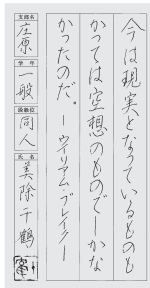 今は現実となっているものも
かつては空想のものでしかな
かったのだ。ーウィリアム・ブレイクー
支部名
庄原
学年
一般
段級位
同人
氏名
美除千鶴